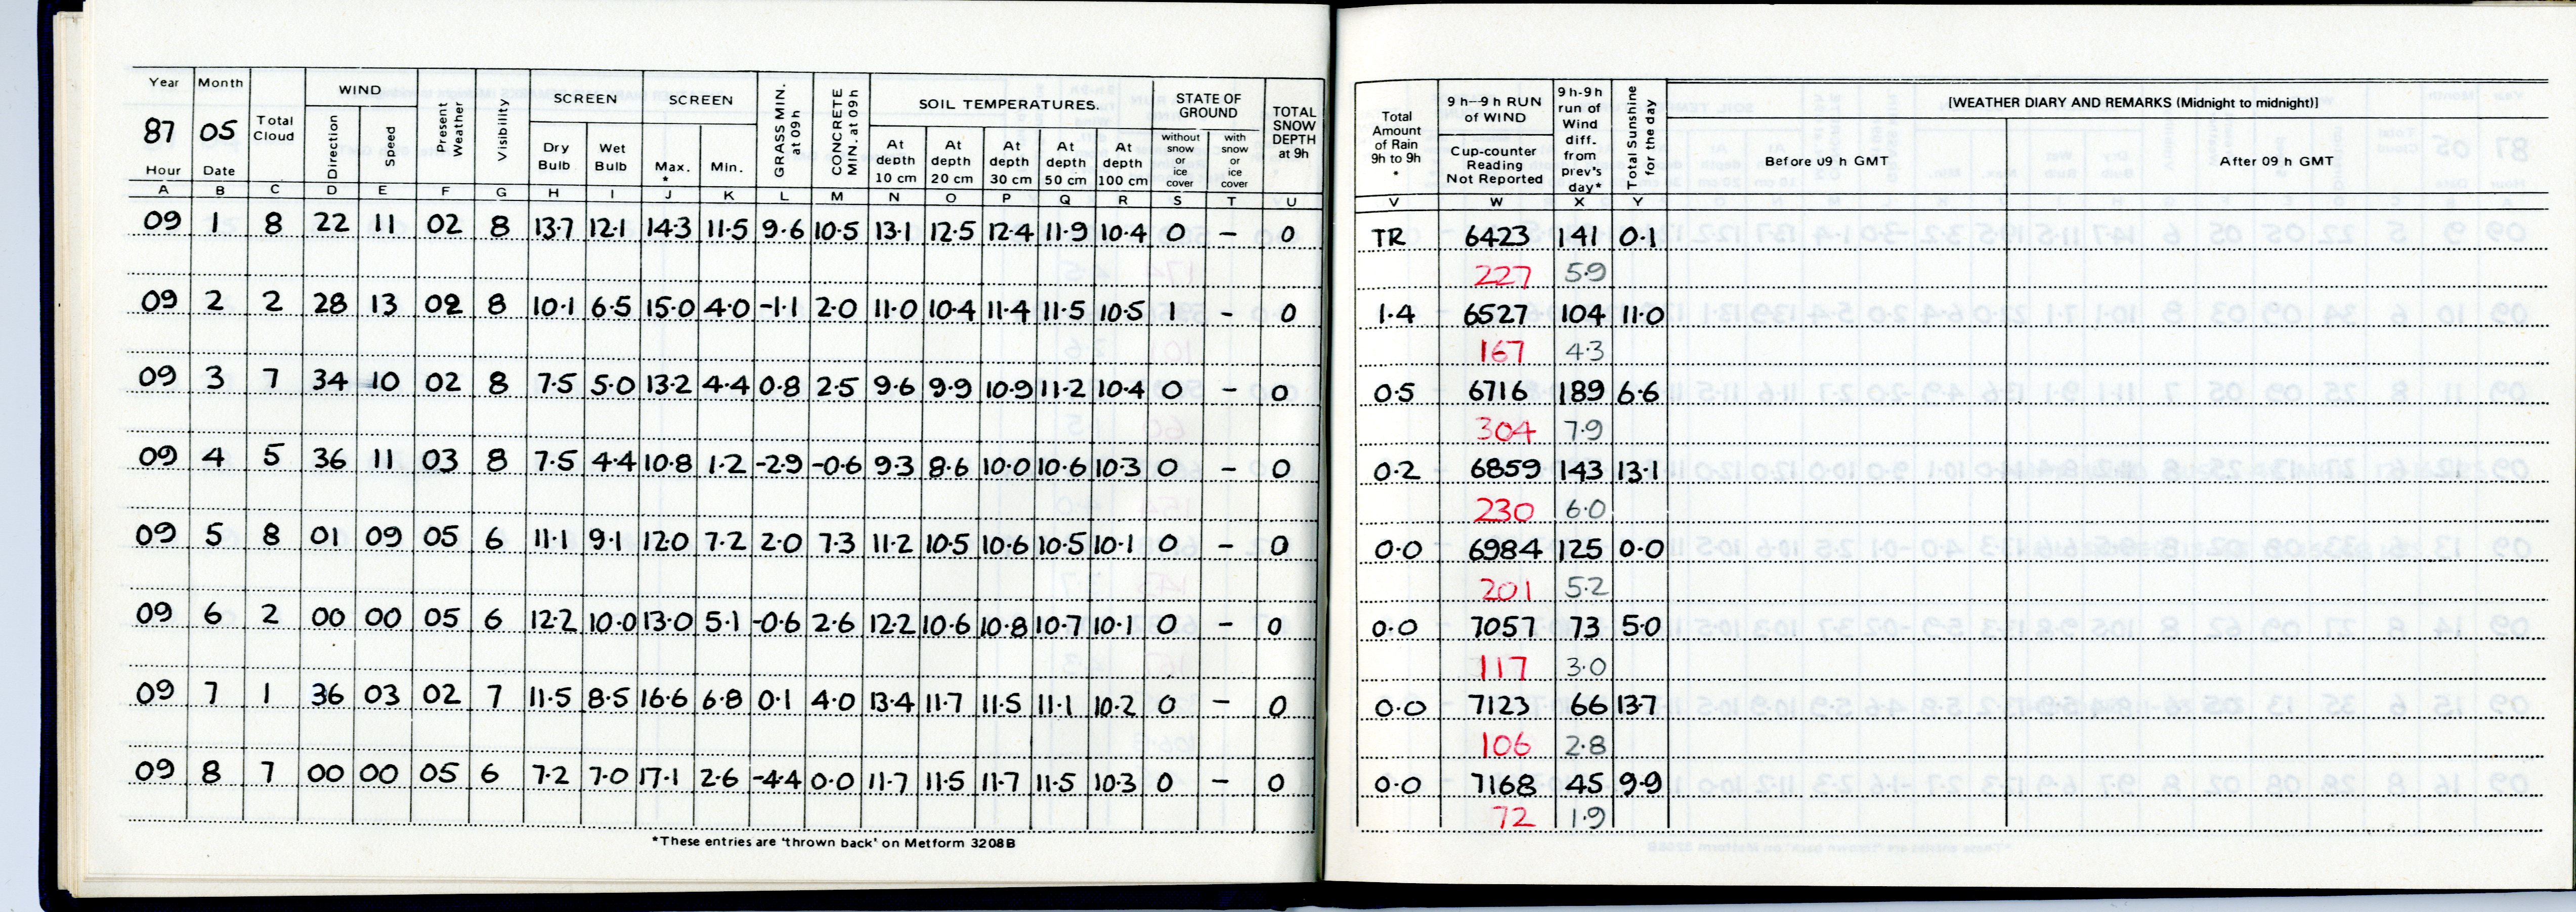 Year Month Total Cloud WIND Present Weather Visibility SCREEN SCREEN GRASS MIN. at 09 h CONCRETE MIN. at 09 h SOIL TEMPERATURES. STATE OF GROUND TOTAL SNOW DEPTH at 9h
87 05 Direction Speed Dry Bulb Wet Bulb Max. * Min. At depth 10 cm At depth 20 cm At depth 30 cm At depth 50 cm At depth 100 cm without snow or ice cover with snow or ice cover
Hour Date
A B C D E F G H I J K L M N O P Q R S T U
09 1 8 22 11 02 8 13.7 12.1 14.3 11.5 9.6 10.5 13.1 12.5 12.4 11.9 10.4 0 - 0
09 2 2 28 13 02 8 10.1 6.5 15.0 4.0 -1.1 2.0 11.0 10.4 11.4 11.5 10.5 1 - 0
09 3 7 34 10 02 8 7.5 5.0 13.2 4.4 0.8 2.5 9.6 9.9 10.9 11.2 10.4 0 - 0
09 4 5 36 11 03 8 7.5 4.4 10.8 1.2 -2.9 -0.6 9.3 8.6 10.0 10.6 10.3 0 - 0
09 5 8 01 09 05 6 11.1 9.1 12.0 7.2 2.0 7.3 11.2 10.5 10.6 10.5 10.1 0 - 0
09 6 2 00 00 05 6 12.2 10.0 13.0 5.1 -0.6 2.6 12.2 10.6 10.8 10.7 10.1 0 - 0
09 7 1 36 03 02 7 11.5 8.5 16.6 6.8 0.1 4.0 13.4 11.7 11.5 11.1 10.2 0 - 0
09 8 7 00 00 05 6 7.2 7.0 17.1 2.6 -4.4 0.0 11.7 11.5 11.7 11.5 10.3 0 - 0
*These entries are 'thrown back' on Metform 3208B
Total Amount of Rain 9h to 9h * 9 h-9 h RUN of WIND Cup-counter Reading Not Reported 9 h-9h run of Wind diff. from prev's day* Total Sunshine for the day [WEATHER DIARY AND REMARKS (Midnight to midnight)]
Before 09 h GMT After 09 h GMT
V W X Y
TR 6423 141 0.1
227 5.9
1.4 6527 104 11.0
167 4.3
0.5 6716 189 6.6
304 7.9
0.2 6859 143 13.1
230 6.0
0.0 6984 125 0.0
201 5.2
0.0 7057 73 5.0
117 3.0
0.0 7123 66 13.7
106 2.8
0.0 7168 45 9.9
72 1.9